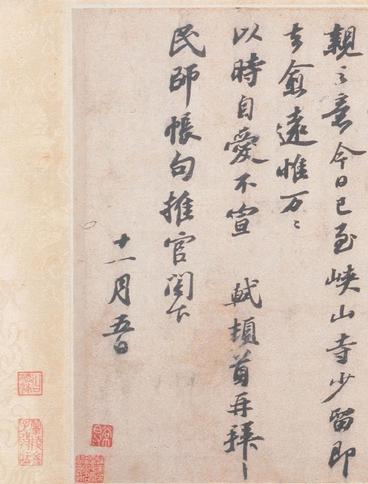 親之意今日已至峽山寺少留即
去愈遠惟万万
以時自愛不宣 軾頓首再拜
民師帳句推官閣下
十一月五日